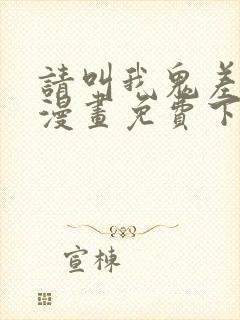 請叫我鬼差
漫畫免費下
宣棟